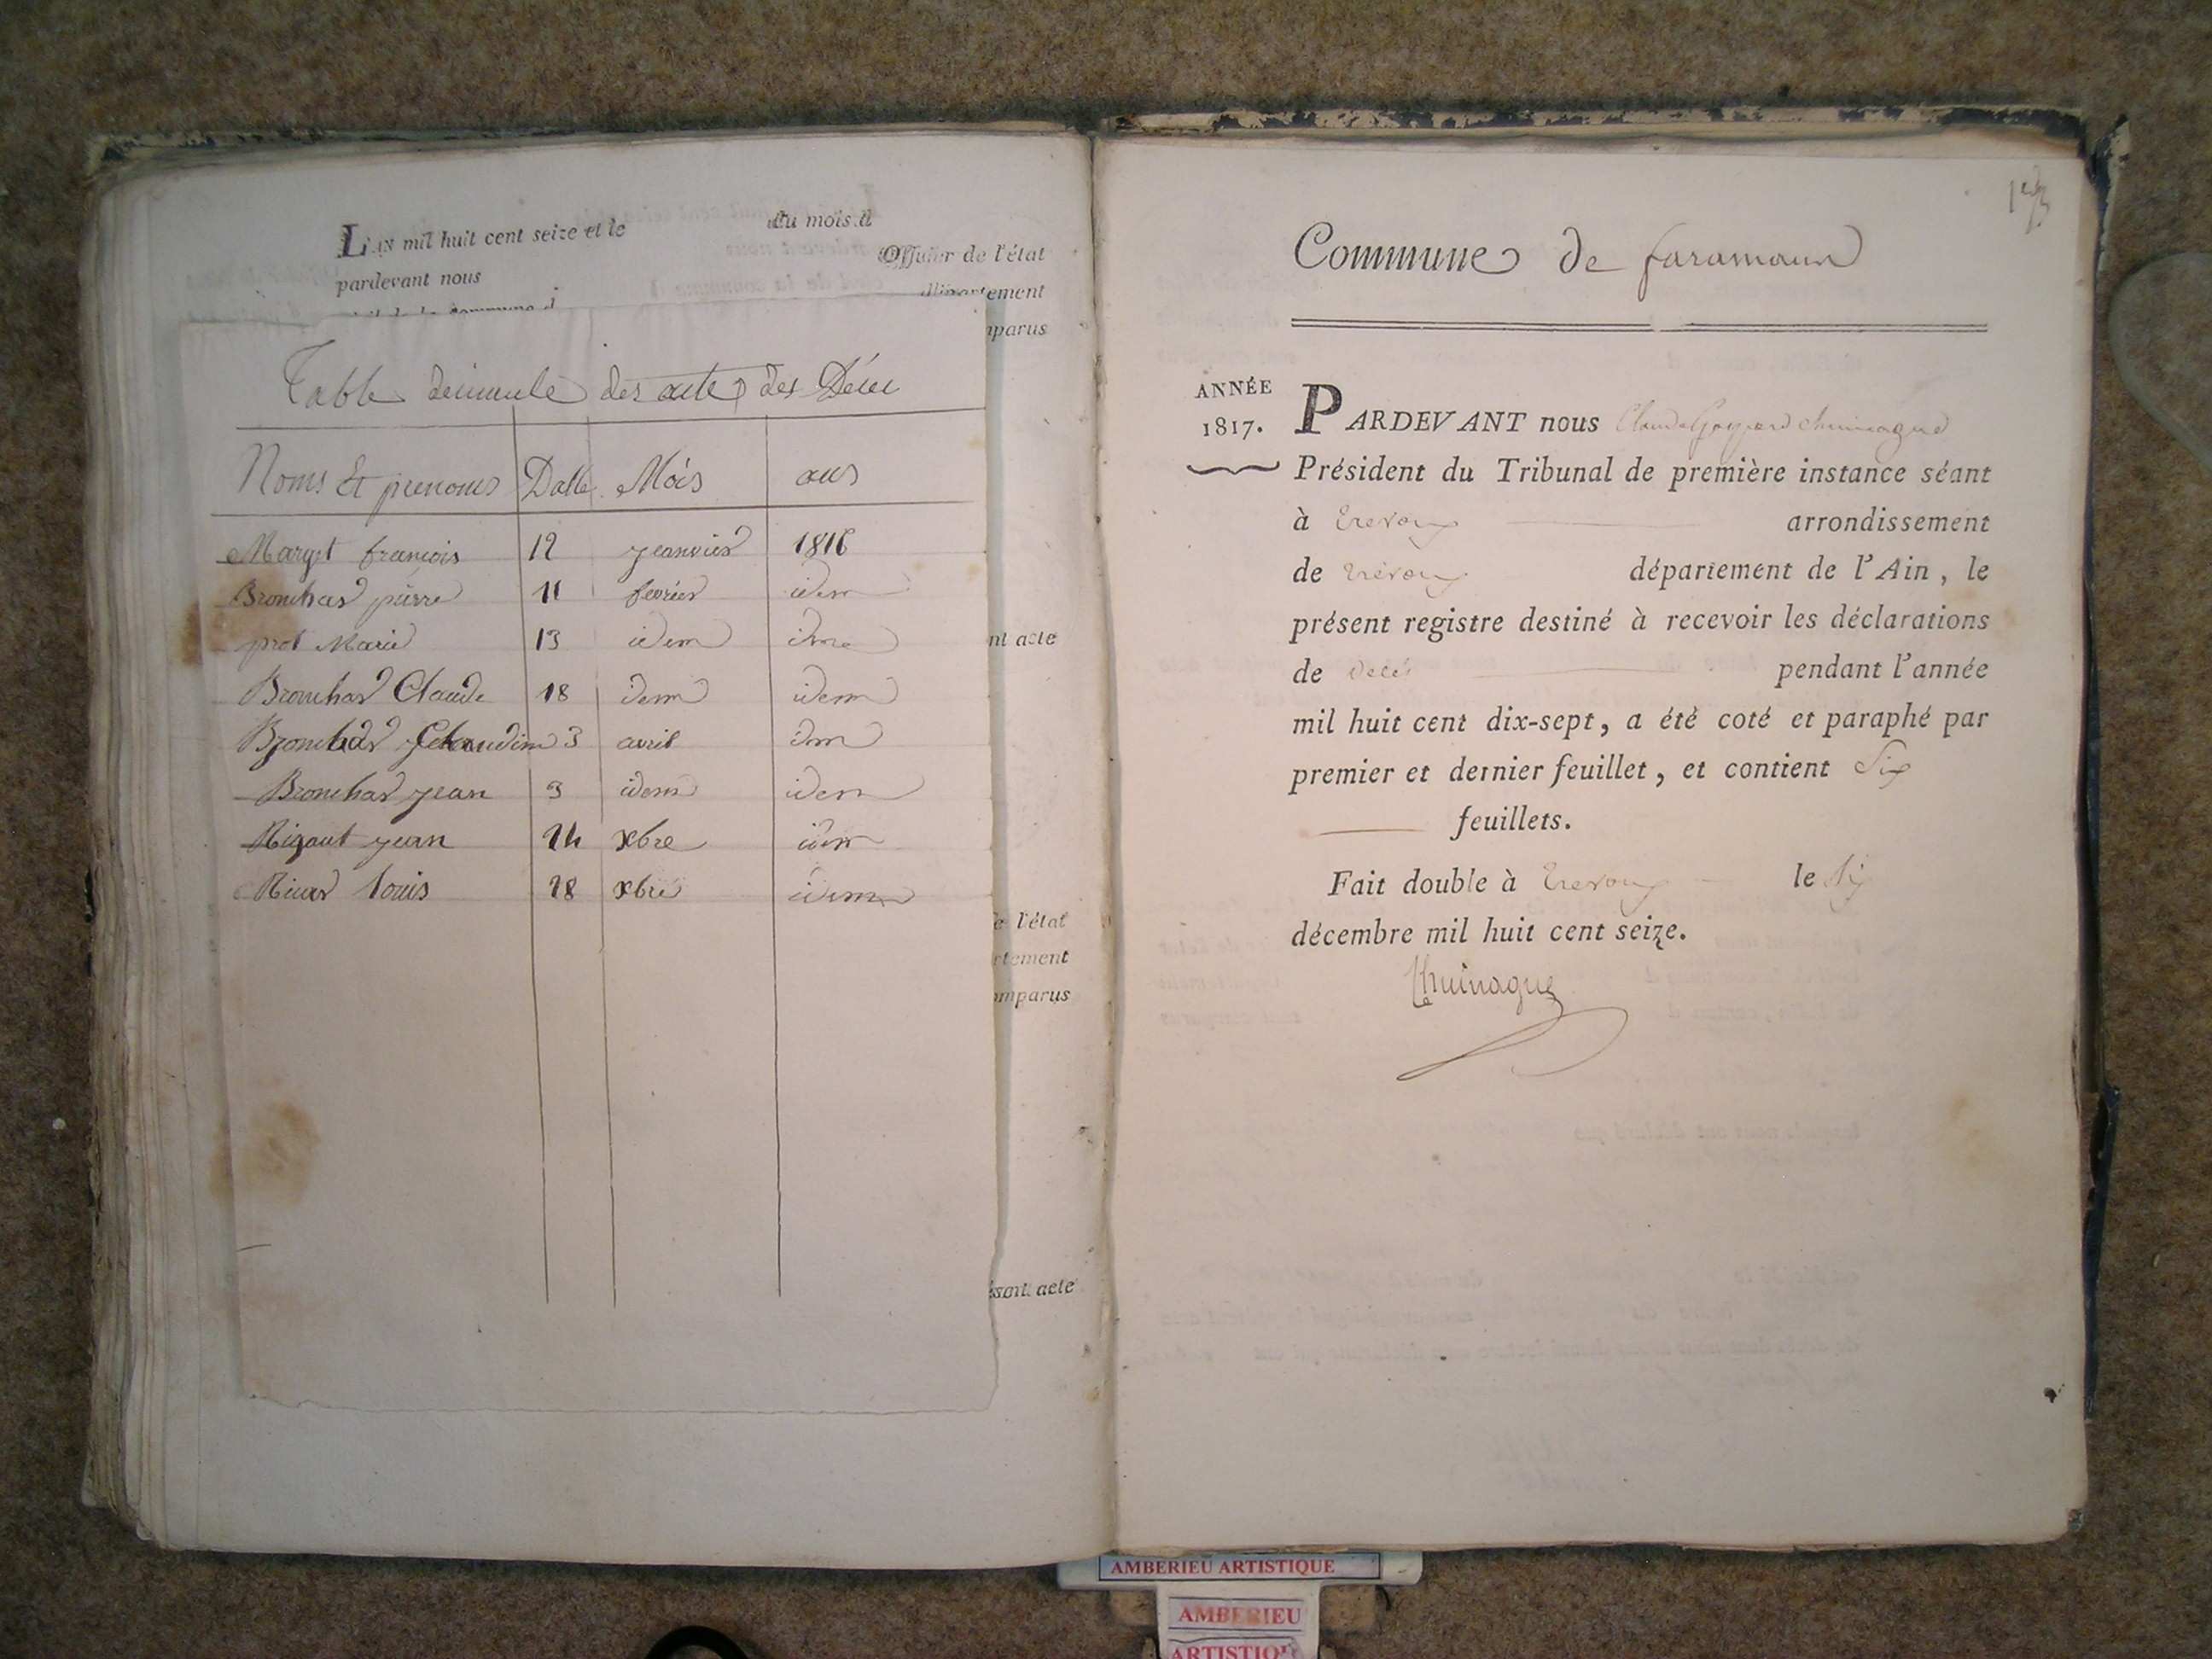 L'an mil huit cent seize et le du mois d
pardevant nous Officier de l'état
département
mparus
Table des acte des Déces
Noms Et prenoms Datte Mois ans
Marget francois 12 jeanvier 1816
Bronchar pierre 11 fevrier idem
prot Marie 13 idem idem
Bronchar Claude 18 idem idem
Bronchar 3 avril idem
Bronchar jean 3 idem idem
Rigaut jean 24 xbre idem
louis 28 xbre idem
nt acte
e l'état
rtement
omparus
ésent acte
Commune de faramans
ANNÉE
1817.
PARDEVANT nous Claude Gaspard
Président du Tribunal de première instance séant
à Trevoux arrondissement
de Trévoux département de l'Ain, le
présent registre destiné à recevoir les déclarations
de décés pendant l'année
mil huit cent dix-sept, a été coté et paraphé par
premier et dernier feuillet, et contient Six
feuillets.
Fait double à Trevoux le six
décembre mil huit cent seize.
AMBERIEU ARTISTIQUE
AMBERIEU
ARTISTIQUE